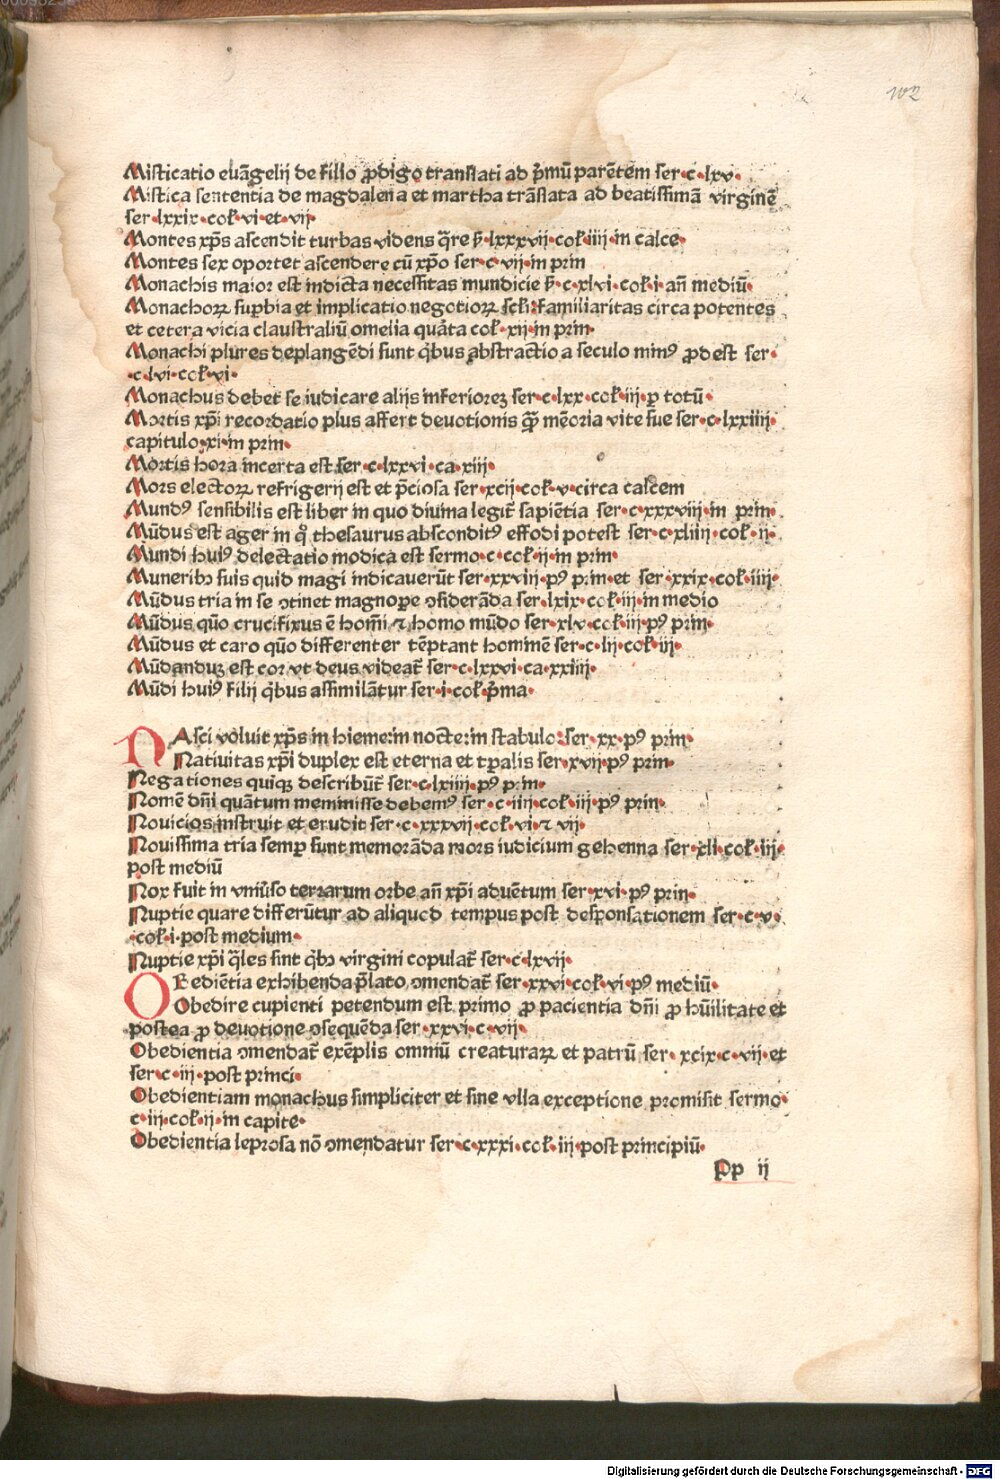 102
Misticatio euāgelij de filio ꝓdigo translati ad p̄mū parētem ser·c·lxv·
Mistica sententia de magdalena et martha trāslata ad beatissimā virginē
ser·lxxix·col̄·vi·et·vij·
Montes xp̄s ascendit turbas videns q̄re s̄·lxxxvij·col̄·iiij·in calce·
Montes sex oportet ascendere cū xp̄o ser·c·vij·in prin
Monachis maior est indicta necessitas mundicie s̄·c·xlvi·col̄·i·an̄ mediū·
Monachoꝝ suꝑbia et implicatio negotioꝝ scl̄i: familiaritas circa potentes
et cetera vicia claustraliū omelia quārta col̄·xij·in prin·
Monachi plures deplangēdi sunt q̄bus abstractio a seculo minꝰ ꝓdest ser·
·c·lvi·col̄·vi·
Monachus debet se iudicare alijs inferiorez ser·c·lxx·col̄·iij·ꝑ totū·
Mortis xp̄i recordatio plus affert deuotionis q̄ꝫ mēoria vite sue ser·c·lxxiiij·
capitulo·xi·in prin·
Mortis hora incerta est ser·c·lxxvi·ca·xiij·
Mors electoꝝ refrigerij est et p̄ciosa ser·xcij·col̄·v·circa calcem
Mundꝰ sensibilis est liber in quo diuina legit̄ sapiētia ser·c·xxxviij·in prin·
Mūdus est ager in q̊ thesaurus absconditꝰ effodi potest ser·c·xliiij·col̄·ij·
Mundi huiꝰ delectatio modica est sermo·c·col̄·ij·in prin·
Muneribꝫ suis quid magi indicauerūt ser·xxviij·pꝰ prin·et ser·xxix·col̄·iiij·
Mūdus tria in se ꝯtinet magnoꝑe ꝯsiderāda ser·lxix·col̄·iij·in medio
Mūdus quō crucifixus ē hom̄i ⁊ homo mūdo ser·xlv·col̄·iij·pꝰ prin·
Mūdus et caro quō differenter tēptant hominē ser·c·lij·col̄·iij·
Mūdanduꝫ est cor vt deus videat̄ ser·c·lxxvi·ca·xxiiij·
Mūdi huiꝰ filij q̄bus assimilātur ser·i·col̄·p̄ma·
NAsci voluit xp̄s in hieme: in nocte: in stabulo: ser·xx·pꝰ prin·
Natiuitas xp̄i duplex est eterna et tꝑalis ser·xvij·pꝰ prin·
Negationes quinqꝫ describūt̄ ser·c·lxiiij·pꝰ prin·
Nomē dn̄i quātum meminisse debemꝰ ser·c·iiij·col̄·iij·pꝰ prin·
Nouicios instruit et erudit ser·c·xxxvij·col̄·vi·⁊ vij·
Nouissima tria semꝑ sunt memorāda mors iudicium gehenna ser·xli·col̄·iij·
post mediū
Nox fuit in vniu̇so terrarum orbe an̄ xp̄i aduētum ser·xvi·pꝰ prin·
Nuptie quare differūtur ad aliquod tempus post desponsationem ser·c·v·
·col̄·i·post medium·
Nuptie xp̄i q̄les sint q̄bꝫ virgini copulat̄ ser·c·lxvij·
OBediētia exhibenda p̄lato, ꝯmendat̄ ser·xxvi·col̄·vi·pꝰ mediū·
Obedire cupienti petendum est primo ꝓ pacientia dn̄i ꝓ hūilitate et
postea ꝓ deuotione ꝯsequēda ser·xxvi·c·vij·
Obedientia ꝯmendat̄ exēplis omniū creaturaꝝ et patrū ser·xcix·c·vij·et
ser·c·iij·post princi·
Obedientiam monachus simpliciter et sine vlla exceptione promisit sermo·
c·iij·col̄·ij·in capite·
Obedientia leprosa nō ꝯmendatur ser·c·xxxi·col̄·iij·post principiū·
Pp ij
Digitalisierung gefördert durch die Deutsche Forschungsgemeinschaft - DFG